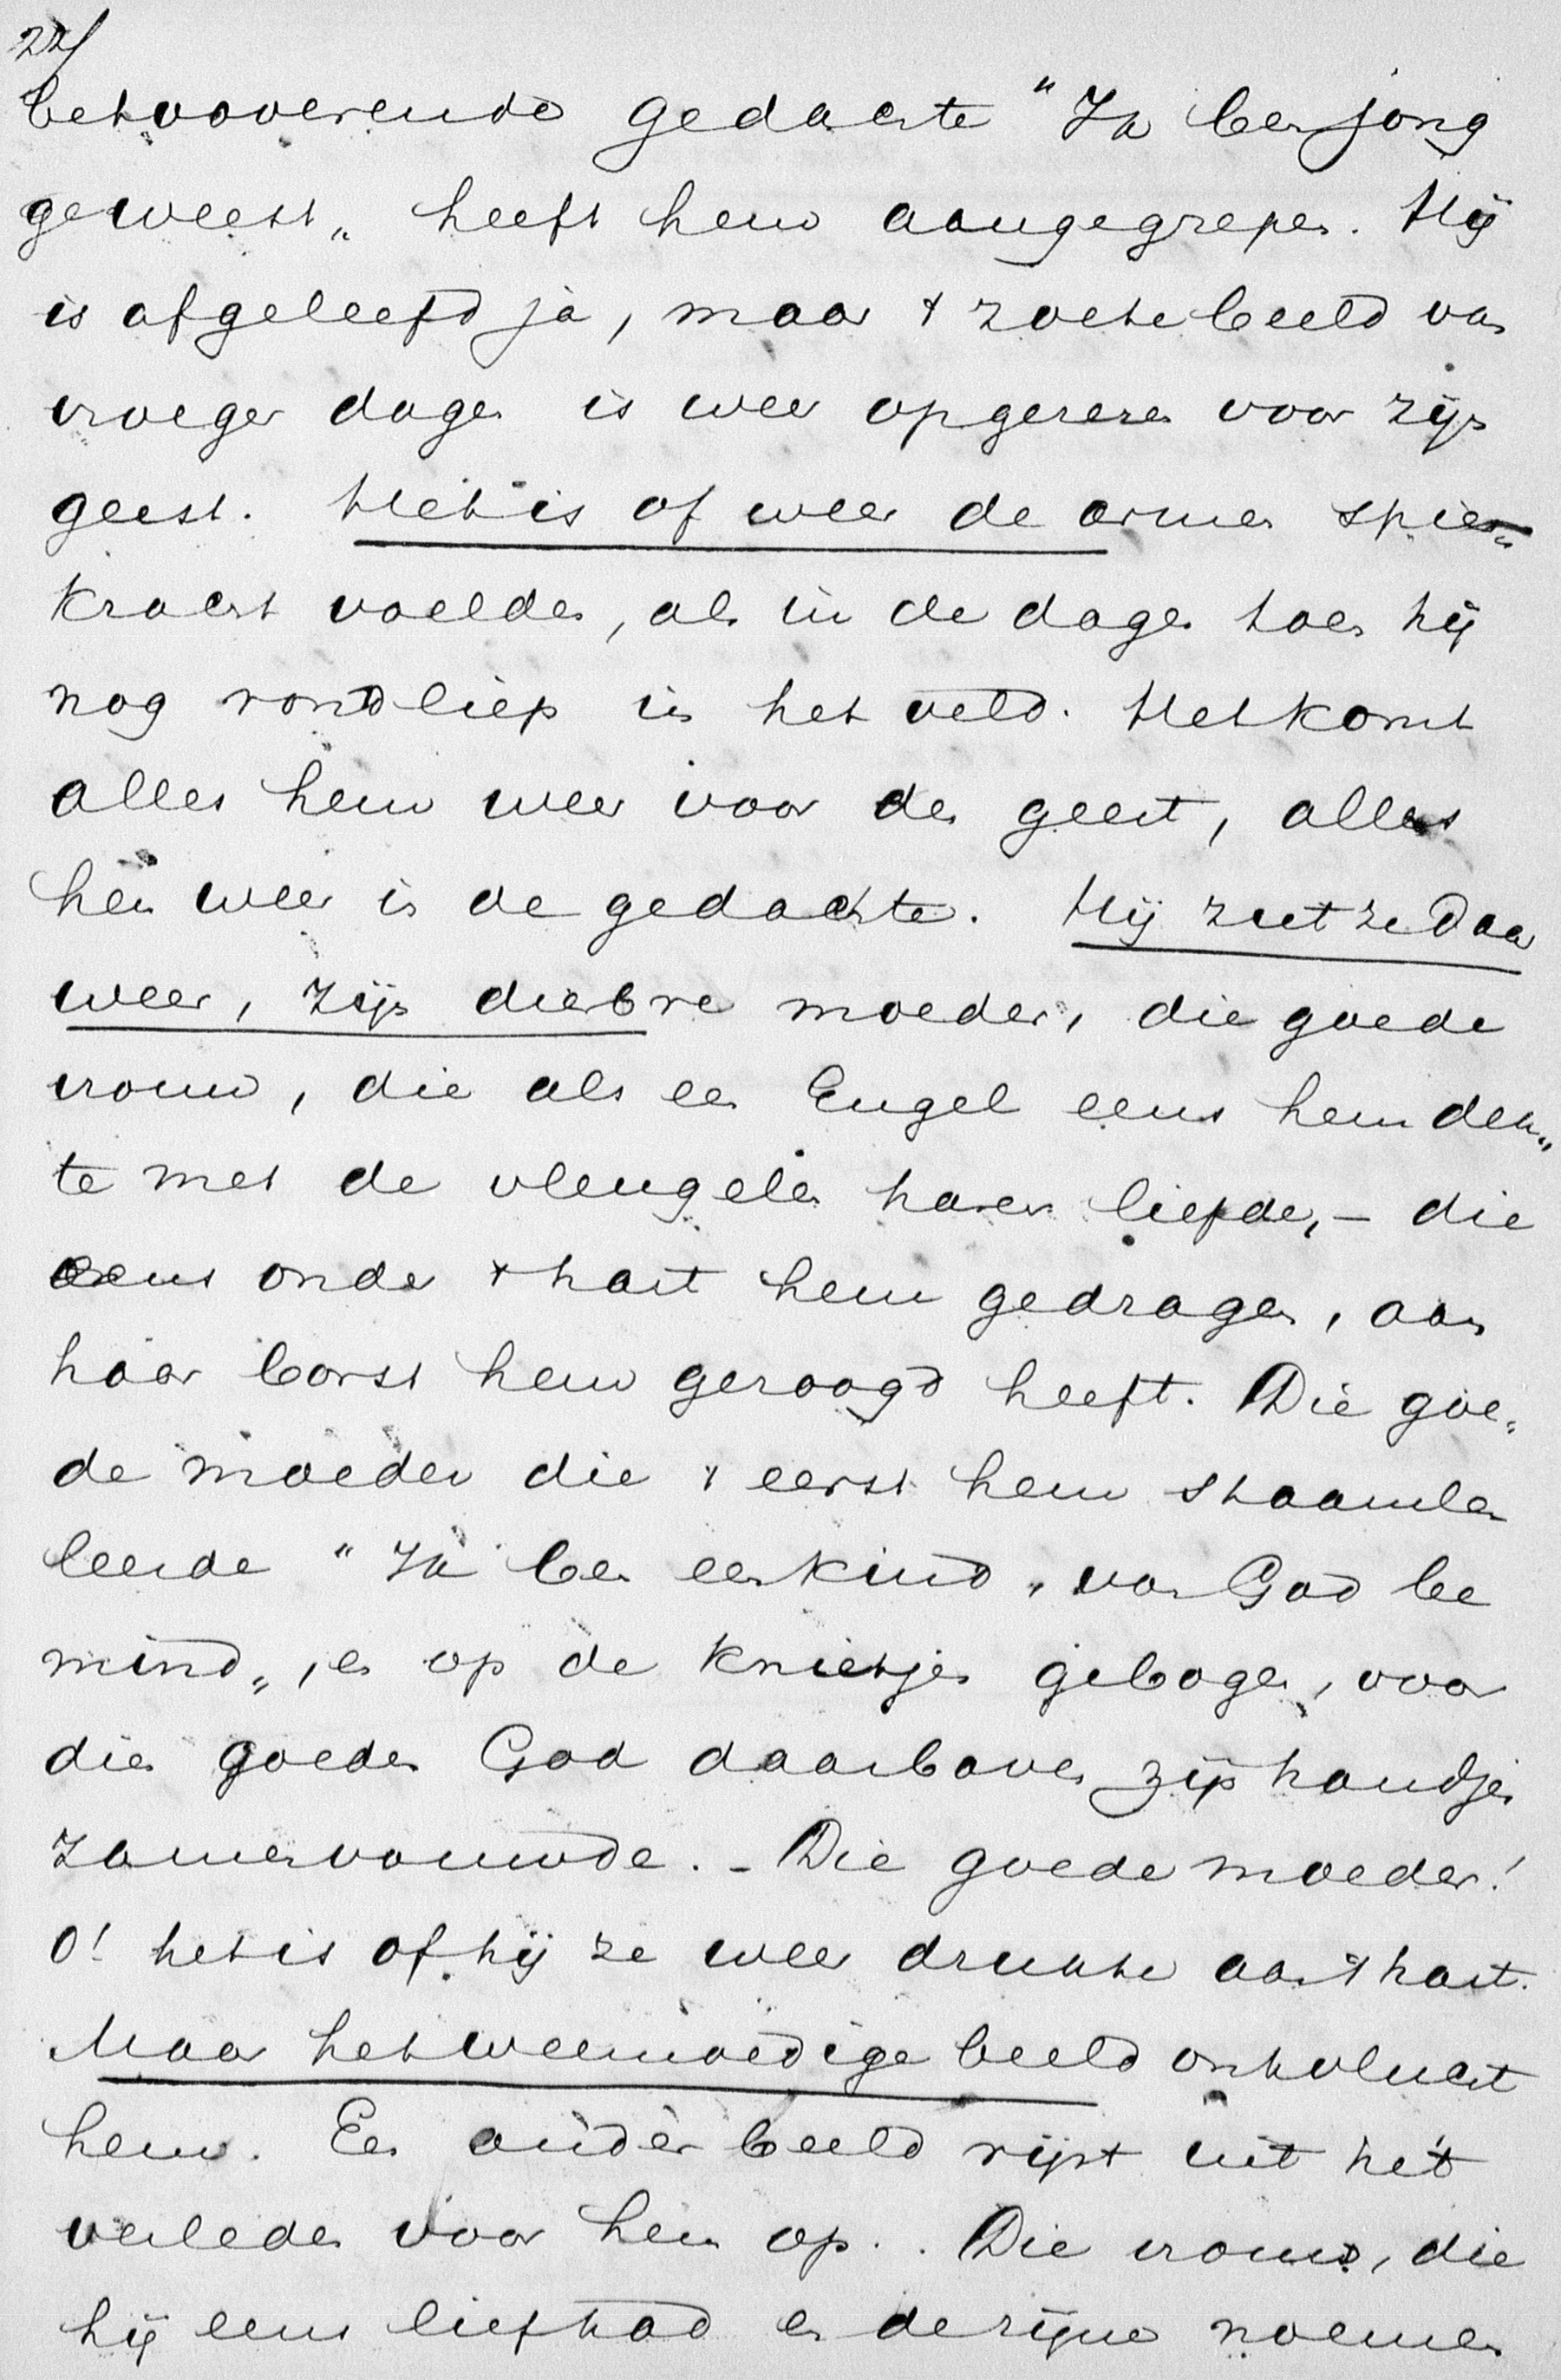 22/
betooverende gedachte "Ik ben jong
geweest„ heeft hem aangegrepen. Hij
is afgeleefd ja, maar 't zoete beeld van
vroeger dagen is weer opgerezen voor zijn
geest. Het is of weer de armen spier„
kracht voelden, als in de dagen toen hij
nog rondliep in het veld. Het komt
alles hem weer voor den geest, alles
hem weer in de gedachte. Hij ziet ze daar
weer, zijn dierbre moeder, die goede
vrouw, die als een Engel eens hem dek„
te met de vleugelen harer liefde, – die
eens onder 't hart hem gedragen, aan
haar borst hem gezoogd heeft. Die goe„
de moeder die 't eerst hem staamlen
leerde "Ik ben een kind, van God be
mind„, en op de knietjes gebogen, voor
dien goeden God daarboven zijn handjes
zamenvouwde. – Die goede moeder!
O! het is of hij ze weer drukte aan 't hart.
Maar het weemoedige beeld ontvlucht
hem. Een ander beeld rijst uit het
verleden voor hem op. . Die vrouw, die
hij eens lief had en de zijne noemen